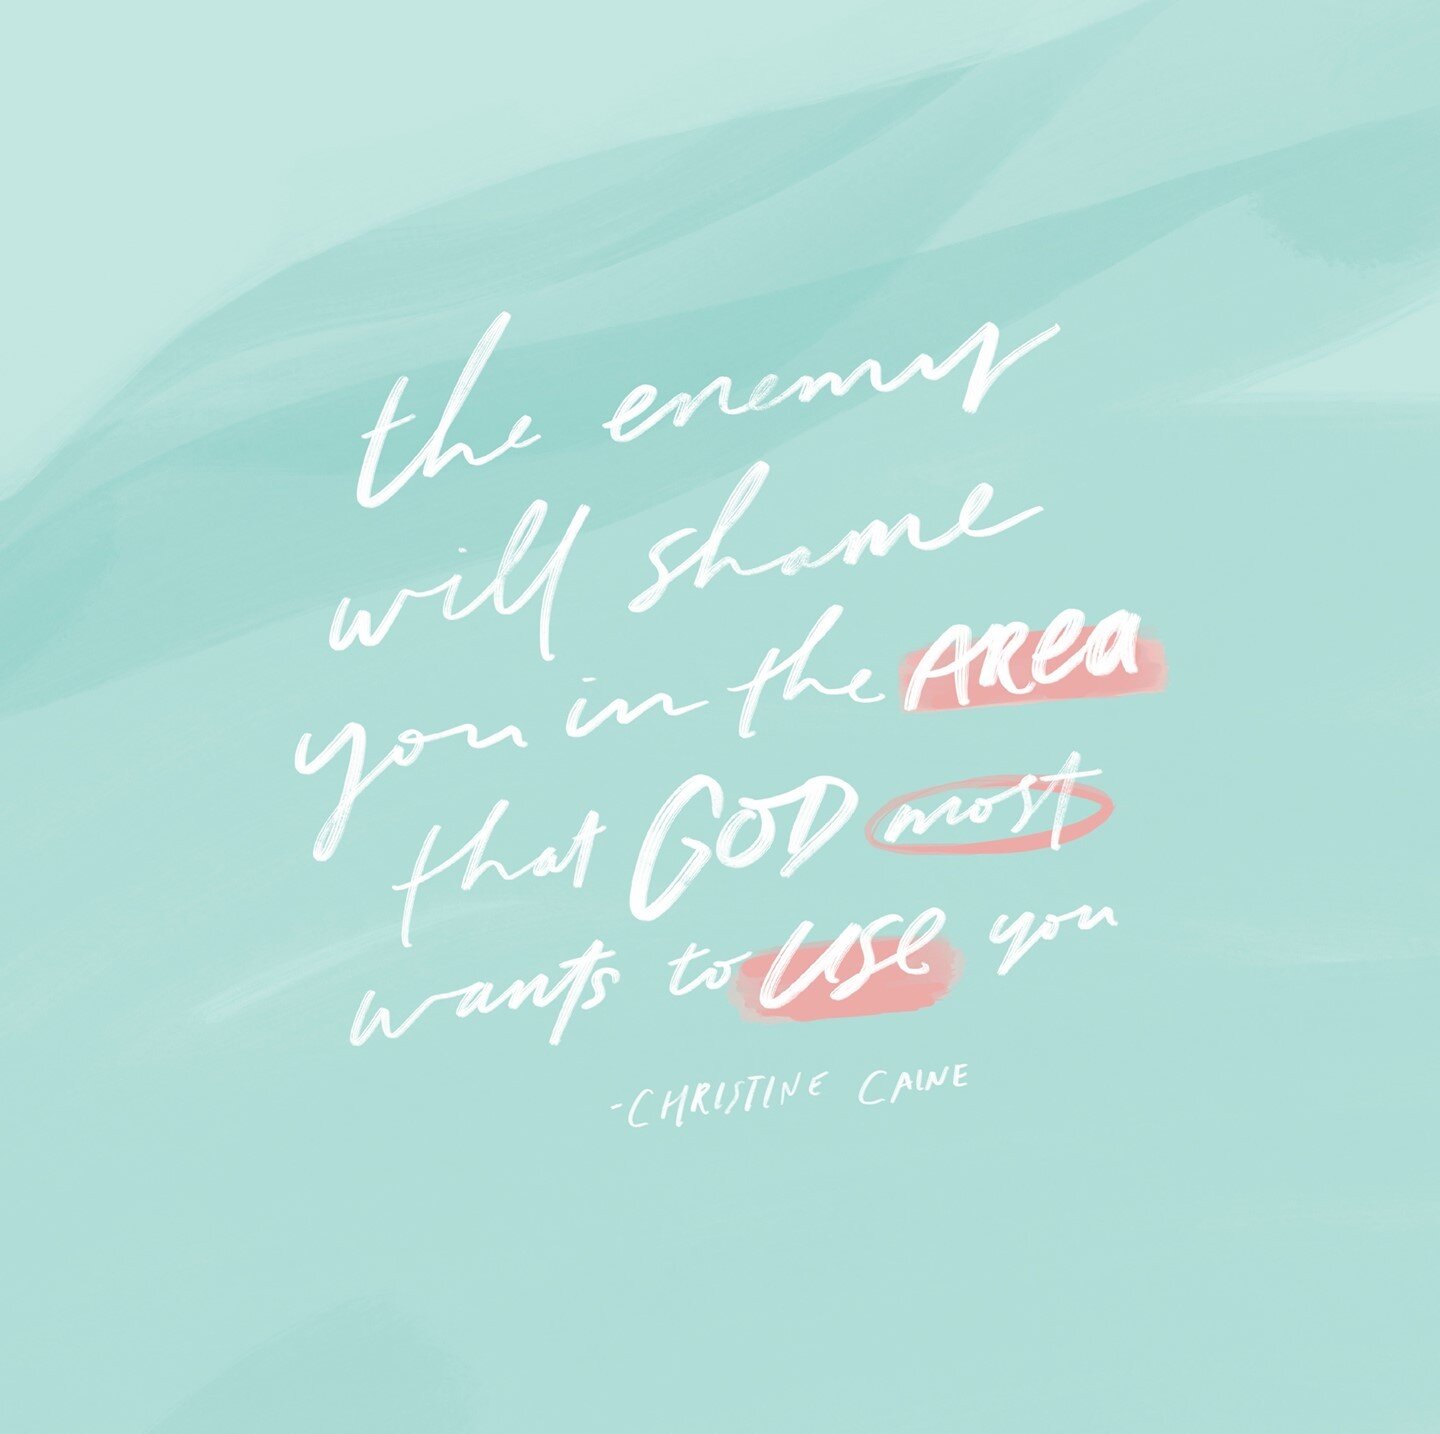 the enemy
will shame
you in the AREA
that GOD most
wants to USE you
-CHRISTINE CAINE